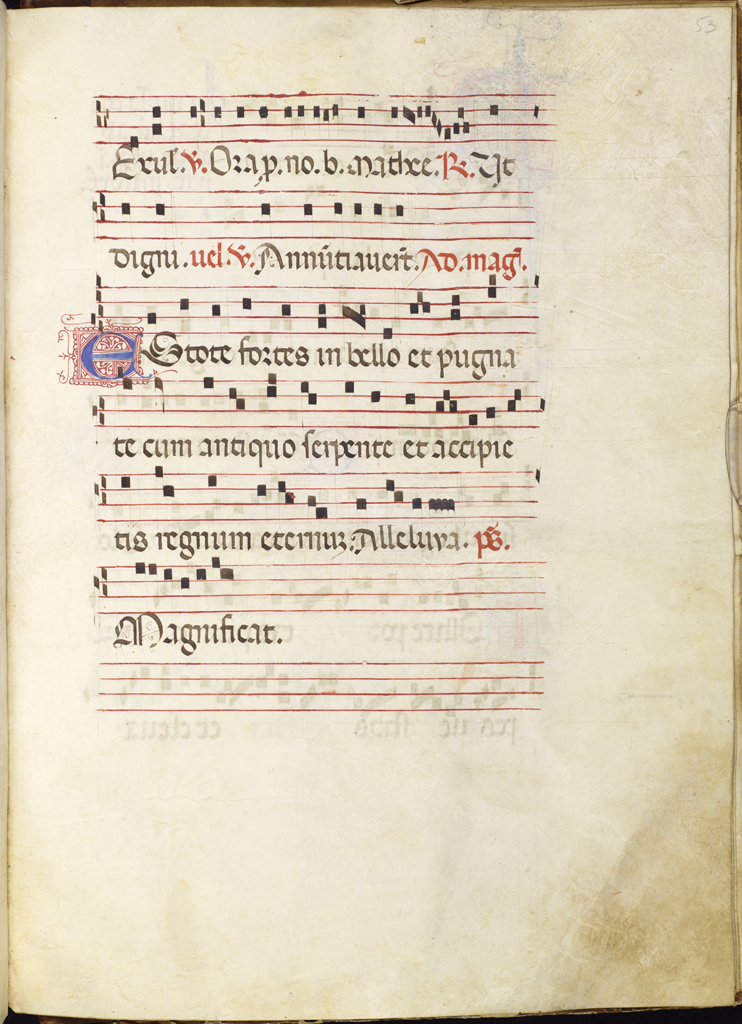 53
Exul. ℣. Ora p. no. b. mathee. ℟. Ut
digni. uel ℣. Annūtiauerūt. Ad. mag̃.
EStote fortes in bello et pugna
te cum antiquo serpente et accipie
tis regnum eternuꝫ. Alleluya. pṡ.
Magnificat.